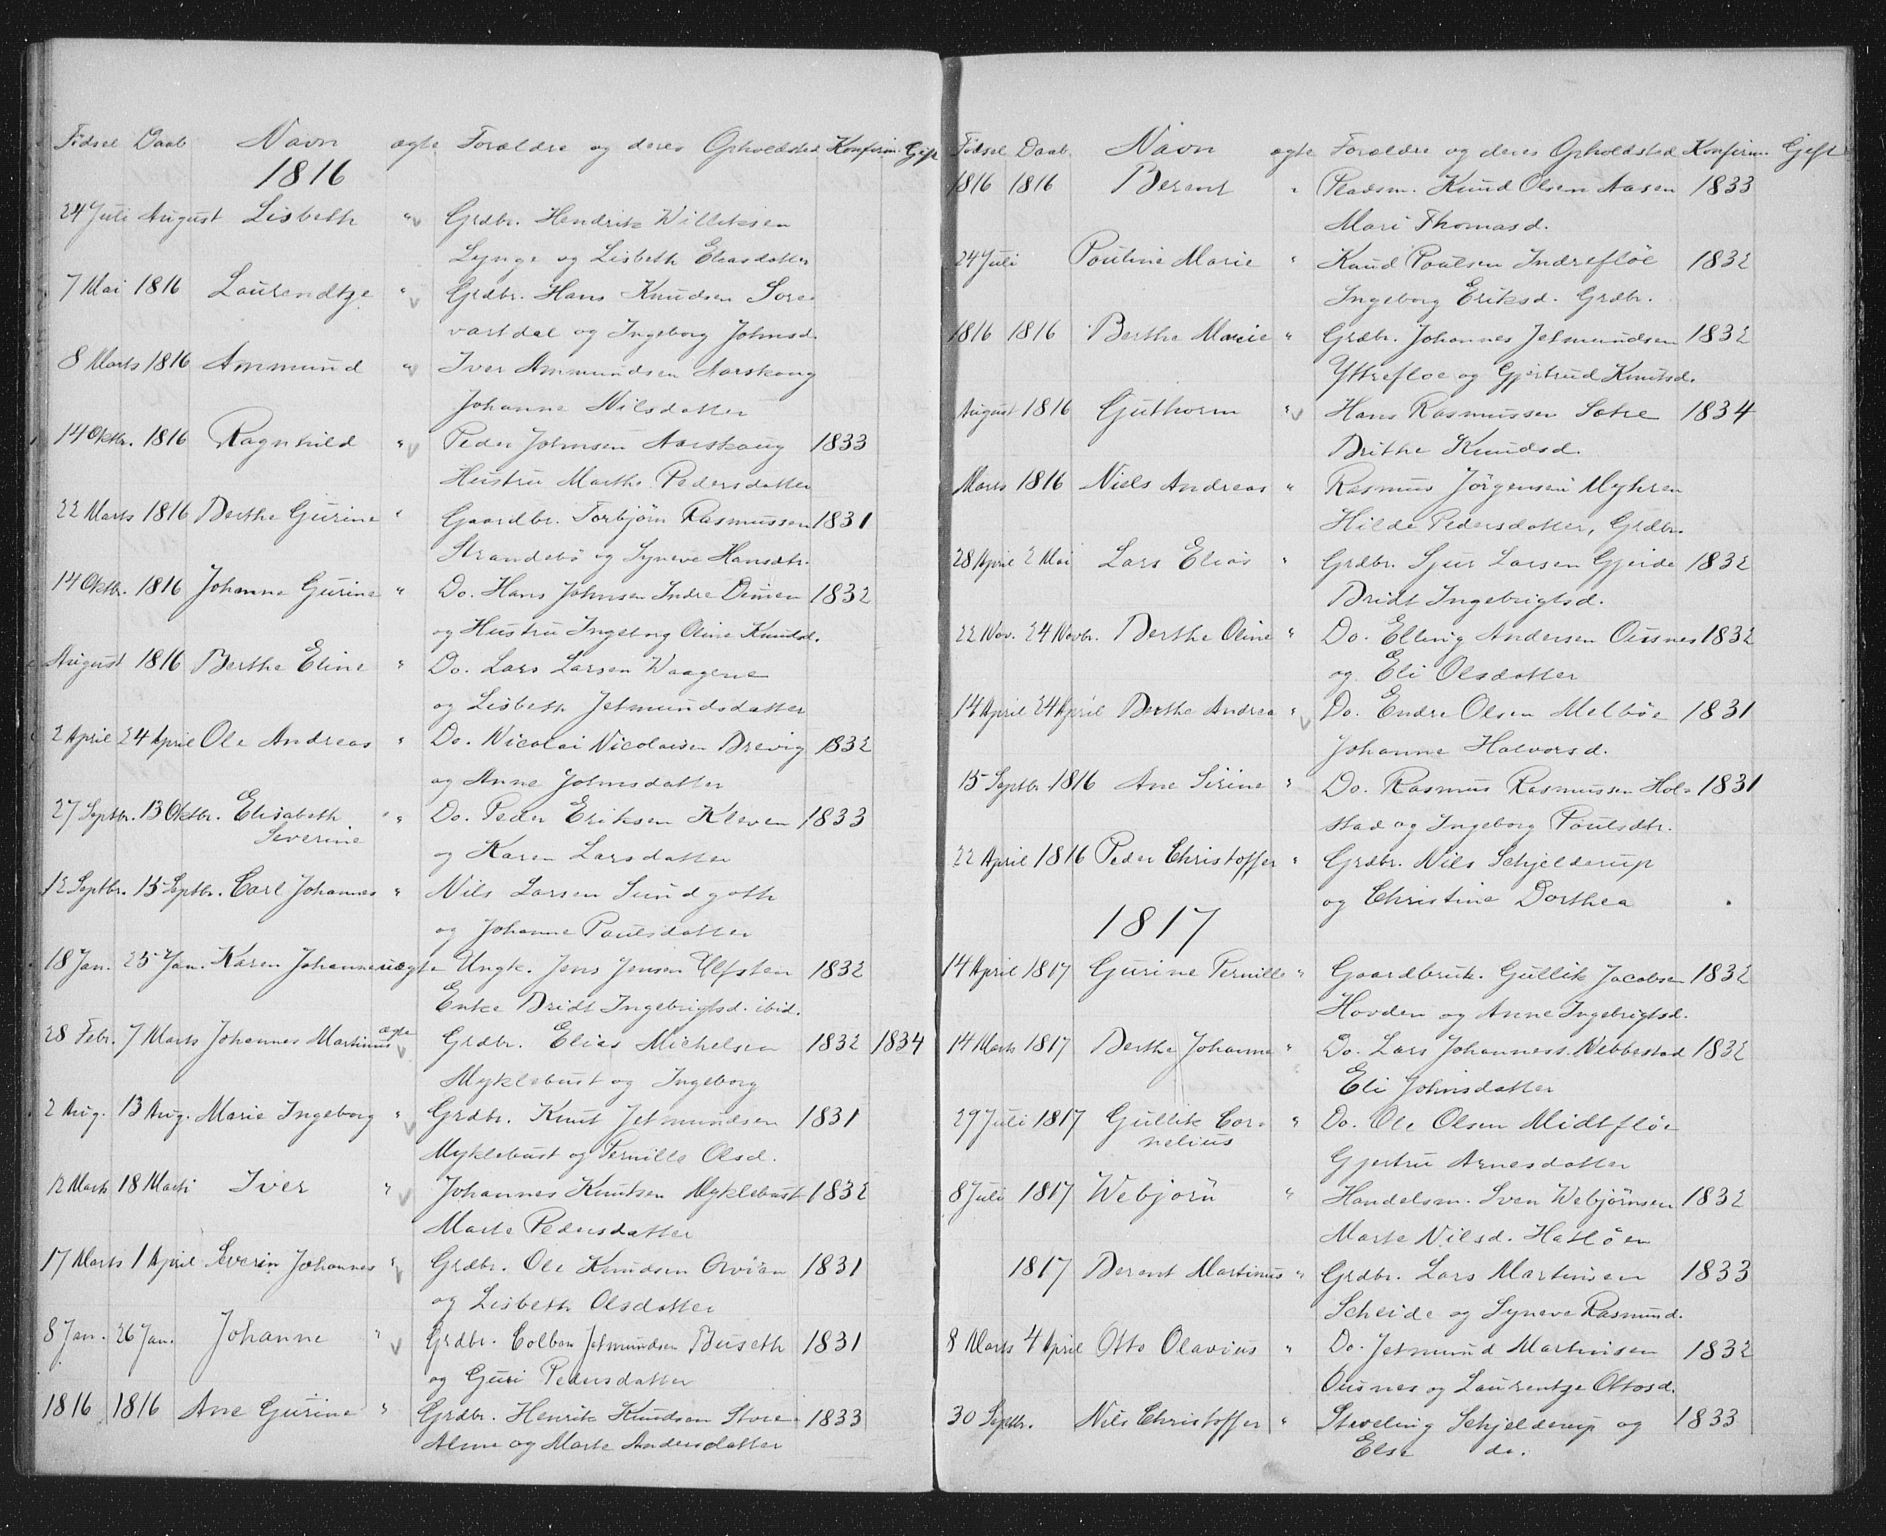 Födsel Daab Navn ægte Forældre og deres Opholdsted Konfirm. Gift
1816
24 Juli August Lisbeth " Grdbr. Hendrik Williksen
Lynge og Lisbeth Eliasdatter
7 Mai 1816 Laurendtze " Grdbr. Hans Knudsen Sore-
vartdal og Ingeborg Johnsd.
8 Marts 1816 Ammund " Iver Ammundsen Aarskoug
Johanne Nilsdatter
14 Oktbr. 1816 Ragnhild " Peder Johnsen Aarskoug 1833
Hustru Marthe Pedersdatter
22 Marts 1816 Berthe Gurine " Gaardbr. Torbjörn Rasmussen 1831
Strandebö og Syneve Hansdtr.
14 Oktbr. 1816 Johanne Gurine " Do. Hans Johnsen Indre Dimen 1832
og Hustru Ingeborg Oline Knudsd.
August 1816 Berthe Eline " Do. Lars Larsen Waagene
og Lisbeth Jetmundsdatter
2 April 24 April Ole Andreas " Do. Nicolai Nicolaisen Drevig 1832
og Anne Johnsdatter
27 Septbr. 13 Oktbr. Elisabeth " Do. Peder Eriksen Kleven 1833
Severine
og Karen Larsdatter
12 Septbr. 15 Septbr. Carl Johannes " Nils Larsen Sundgoth
og Johanne Paulsdatter
18 Jan. 25 Jan. Karen Johanne uægte Ungk. Jens Jensen Ulfsten 1832
Enke Bridt Ingebrigtsd. ibid.
28 Febr. 7 Marts Johannes Martinus ægte Grdbr. Elias Michelsen 1832 1834
Myklebust og Ingeborg
2 Aug. 13 Aug. Marie Ingeborg " Grdbr. Knut Jetmundsen 1831
Myklebust og Pernille Olsd.
12 Marts 18 Marts Iver " Johannes Knutsen Myklebust 1832
Marte Pedersdatter
17 Marts 1 April Severin Johannes " Grdbr. Ole Knudsen Orvian 1831
og Lisbeth Olsdatter
8 Jan. 26 Jan. Johanne " Grdbr. Colban Jetmundsen Buseth 1831
og Guri Pedersdatter
1816 1816 Ane Gurine " Grdbr. Henrik Knudsen Store- 1833
Alme og Marte Andersdatter
Födsel Daab. Navn ægte Forældre og deres Opholdsted Konfirm. Gift
1816 1816 Berent " Pladsm. Knud Olsen Aasen 1833
Mari Thomasd.
24 Juli Pouline Marie " Knud Poulsen Indreflöe 1832
Ingeborg Eriksd. Grdbr.
1816 1816 Berthe Marie " Grdbr. Johannes Jetmundsen 1832
Yttrefloe og Gjertrud Knutsd.
August 1816 Guthorm " Hans Rasmussen Sætre 1834
Brithe Knudsd.
Marts 1816 Niels Andreas " Rasmus Jörgensen Myhren
Hilde Pedersdatter, Grdbr.
28 April 2 Mai Lars Elias " Grdbr. Sjur Larsen Gjerde 1832
Bridt Ingebrigtsd.
22 Nov. 24 Novbr. Berthe Oline " Do. Elling Andersen Ousnes 1832
og Eli Olsdatter
14 April 24 April Berthe Andrea " Do. Endre Olsen Melböe 1831
Johanne Halvorsd.
15 Septbr 1816 Ane Sirine " Do. Rasmus Rasmussen Hol- 1831
stad og Ingeborg Poulsdtr.
22 April 1816 Peder Christoffer " Grdbr. Nils Schjelderup
og Christine Dorthea
1817
14 April 1817 Gurine Pernille " Gaardbruk. Gullik Jacobsen 1832
Hovden og Anne Ingebrigtsd.
14 Marts 1817 Berthe Johanne " Do. Lars Johanness. Nebbestad 1832
Eli Johnsdatter
29 Juli 1817 Gullik Cor- " Do. Ole Olsen Midtflöe
nelius
Gjertru Arnesdatter
8 Juli 1817 Webjorn " Handelsm. Sven Webjörnsen 1832
Marte Nilsd. Hatlöen
1817 Berent Martinus " Grdbr. Lars Martinsen 1833
Scheide og Syneve Rasmund.
8 Marts 4 April Otto Olavius " Do. Jetmund Martinsen 1832
Ousnes og Laurentze Ottosd.
30 Septbr. Nils Christoffer " Stveling Schjelderup og 1833
Else do.